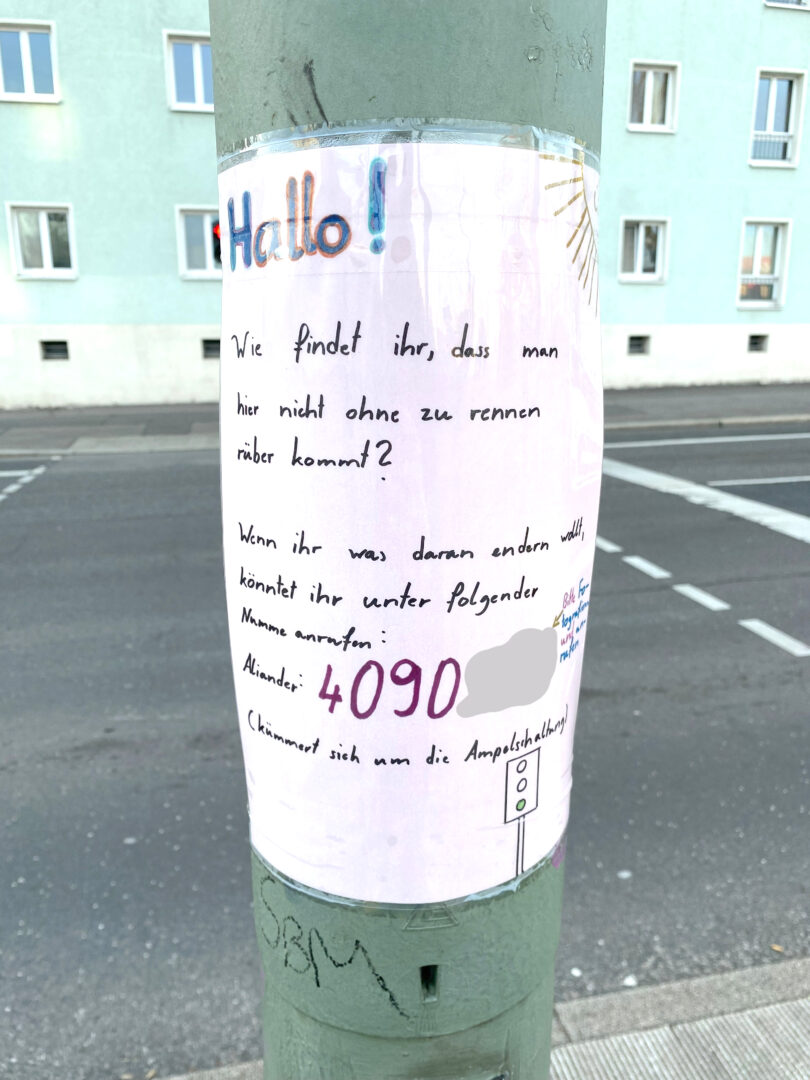 Hallo!
Wie findet ihr, dass man
hier nicht ohne zu rennen
rüber kommt?
Wenn ihr was daran endern wollt,
könntet ihr unter folgender
Numme anrufen:
Aliander: 4090
Bitte Fo-
tografieren
und an-
rufen
(kümmert sich um die Ampelschaltung)
SBM